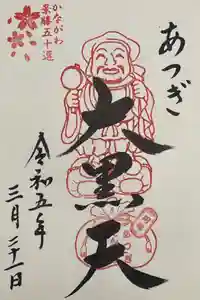 あつぎ
大黒天
かながわ
景勝五十選
令和五年
三月二十一日